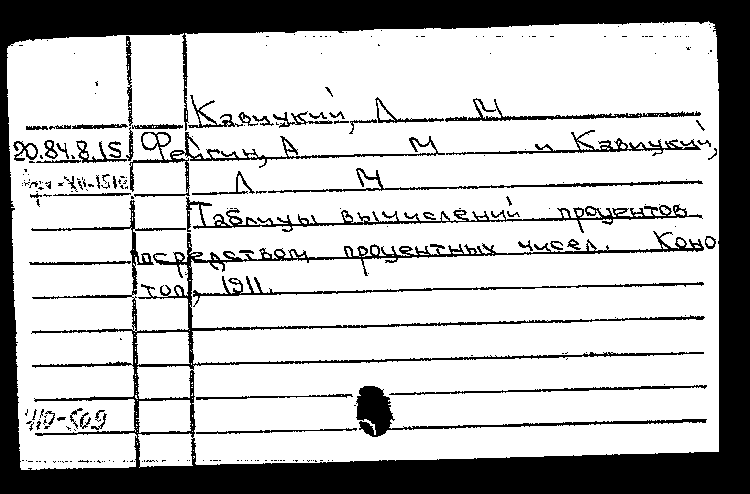 Кавицкий, Л М
20.84.8.15. Фейгин, А М и Кавицкий,
Л М
Таблицы вычислений процентов
посредством процентных чисел. Коно
топ, 1911.
410-509